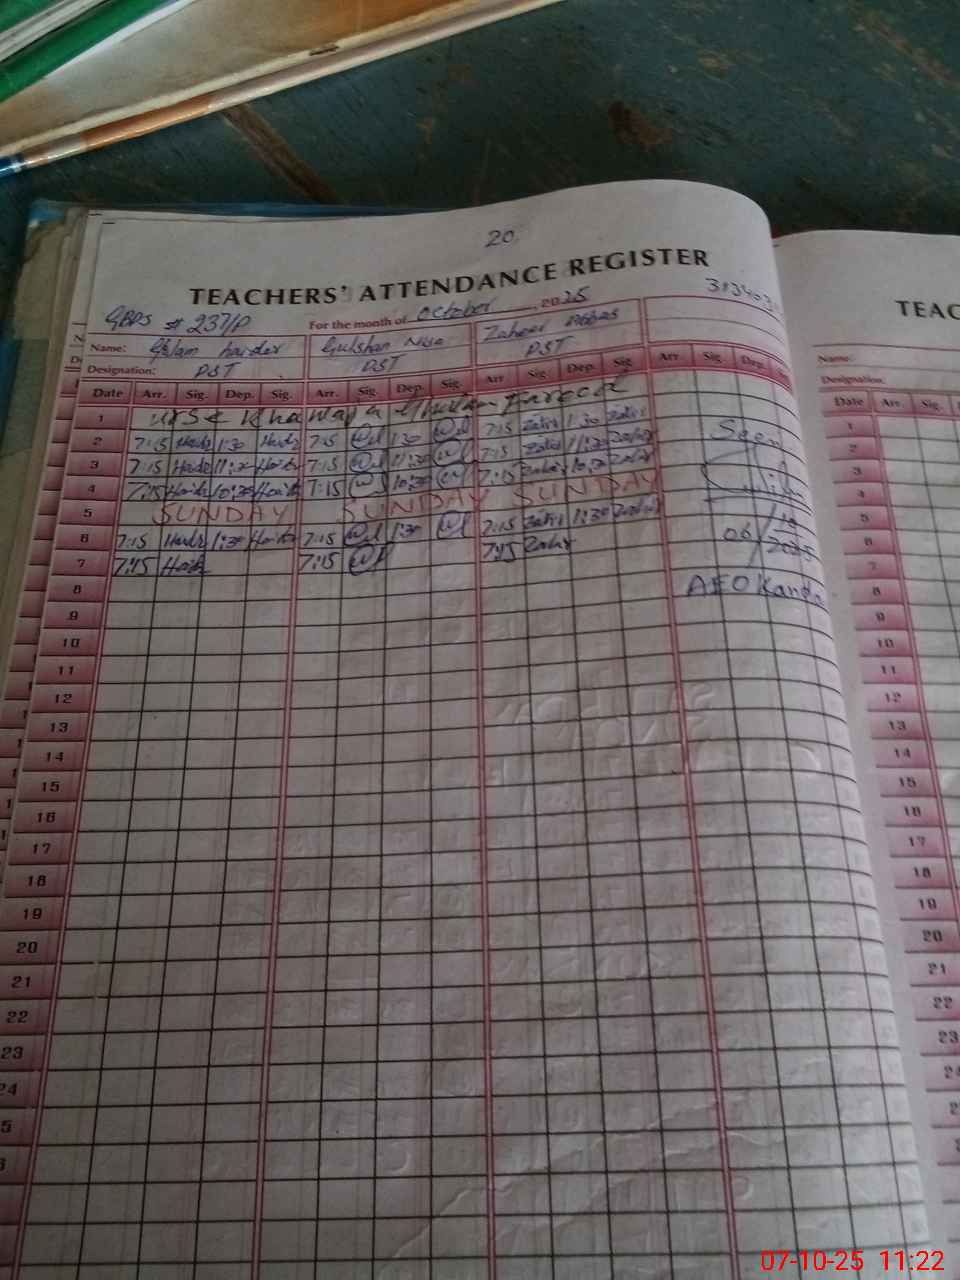 20
TEACHERS' ATTENDANCE REGISTER
GBPS # 237/P For the month of October, 2025 313403
Name: Gulam haider Gulshan Nisa Zaheer Abbas
Designation: PST PST PST
Date Arr. Sig. Dep. Sig. Arr. Sig. Dep. Sig. Arr Sig. Dep. Sig. Arr Sig. Dep.
1 URSE Khawaja Ghulam Fareed
2 7:15 Haidr 1:30 Haidr 7:15 1:30 7:15 Zahir 1:30 Zahir
3 7:15 Haidr 11:30 Haidr 7:15 11:30 7:15 Zahir 11:30 Zahir Seen
4 7:15 Haidr 10:30 Haidr 7:15 10:30 7:15 Zahir 10:30 Zahir
5 SUNDAY SUNDAY SUNDAY
6 7:15 Haidr 1:30 Haidr 7:15 1:30 7:15 Zahir 1:30 Zahir 06/10/2025
7 7:15 Haidr 7:15 7:15 Zahir
8 AEO Kandr
9
10
11
12
13
14
15
16
17
18
19
20
21
22
23
24
TEAC
Name:
Designation:
Date Arr. Sig.
1
2
3
4
5
6
7
8
9
10
11
12
13
14
15
16
17
18
19
20
21
22
23
07-10-25 11:22